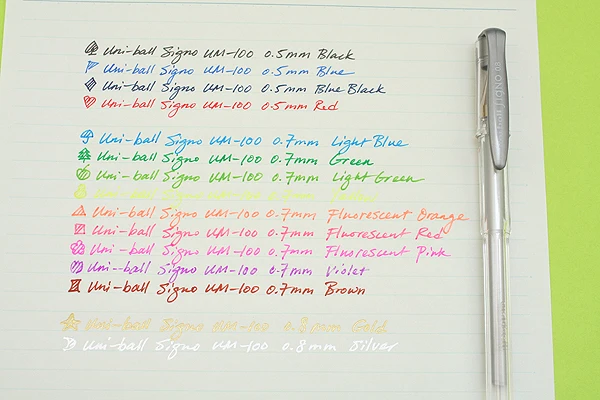 Uni-ball Signo UM-100 0.5mm Black
Uni-ball Signo UM-100 0.5mm Blue
Uni-ball Signo UM-100 0.5mm Blue Black
Uni-ball Signo UM-100 0.5mm Red
Uni-ball Signo UM-100 0.7mm Light Blue
Uni-ball Signo UM-100 0.7mm Green
Uni-ball Signo UM-100 0.7mm Light Green
Uni-ball Signo UM-100 0.7mm Fluorescent Orange
Uni-ball Signo UM-100 0.7mm Fluorescent Red
Uni-ball Signo UM-100 0.7mm Fluorescent Pink
Uni-ball Signo UM-100 0.7mm Violet
Uni-ball Signo UM-100 0.7mm Brown
Uni-ball Signo UM-100 0.8mm Gold
Uni-ball Signo UM-100 0.8mm Silver
SIGNO